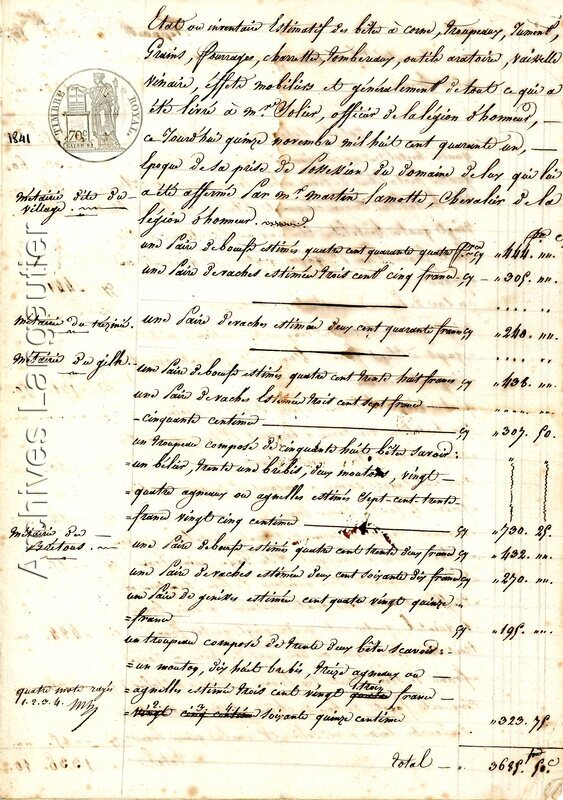 Etat ou inventaire Estimatif des bête à corne, troupeaux, Jument,
Grains, ffourrages, charrette, tombereaux, outils aratoire, vaisselle
vinaire, éffets mobiliers et généralement de tout ce qui a
été livré à mr. Soler, officier de la légion d'honneur, —
ce Jourd'hui quinze novembre mil huit cent quarante un, —
Epoque de sa prise de Possession du domaine de lux qui lui
a été affermé Par mr. martin Lamotte, Chevalier de la
légion d'honneur.
TIMBRE ROYAL
70c
1841
métairie dite du
village.
frs c
une Paire de bœufs estimés quatre cent quarante quatre ffrcs cy " 444 "
une Paire de vaches estimée trois cent cinq francs cy — " 305. "
métairie du
une Paire de vaches estimée deux cent quarante francs cy " 240. "
Métairie du gelh.
une Paire de bœufs estimés quatre cent trente huit francs cy " 438. "
une Paire de vaches Estimée trois cent sept franc —
cinquante centimes — cy " 307. 50.
un troupeau composé de cinquante huit bête savoir :
= un bélier, trente une brébis, deux moutons, vingt -
= quatre agneaux ou agnelles estimés sept-cent trente -
= francs vingt cinq centimes — cy " 730. 25.
Métairie de
une Paire de bœufs estimés quatre cent trente deux francs cy " 432. "
une Paire de vaches estimée deux cent soixante dix francs cy " 270. "
une Paire de genisses estimée cent quatre vingt quinze
= francs cy " 195. "
un troupeau composé de trente deux bête scavoir :
= un mouton, dix huit brebis, treize agneaux ou —
quatre mots rayés
1. 2. 3. 4.
= agnelles estimé trois cent vingt quatre trois francs —
= vingt cinq centimes soixante quinze centimes " 323. 75
total — " 3685. frs 50. c
Archives Langautier